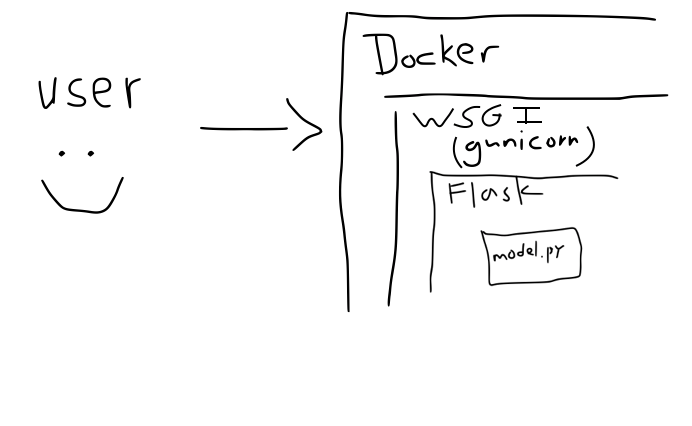 user
Docker
WSGI
(gunicorn)
Flask
model.py